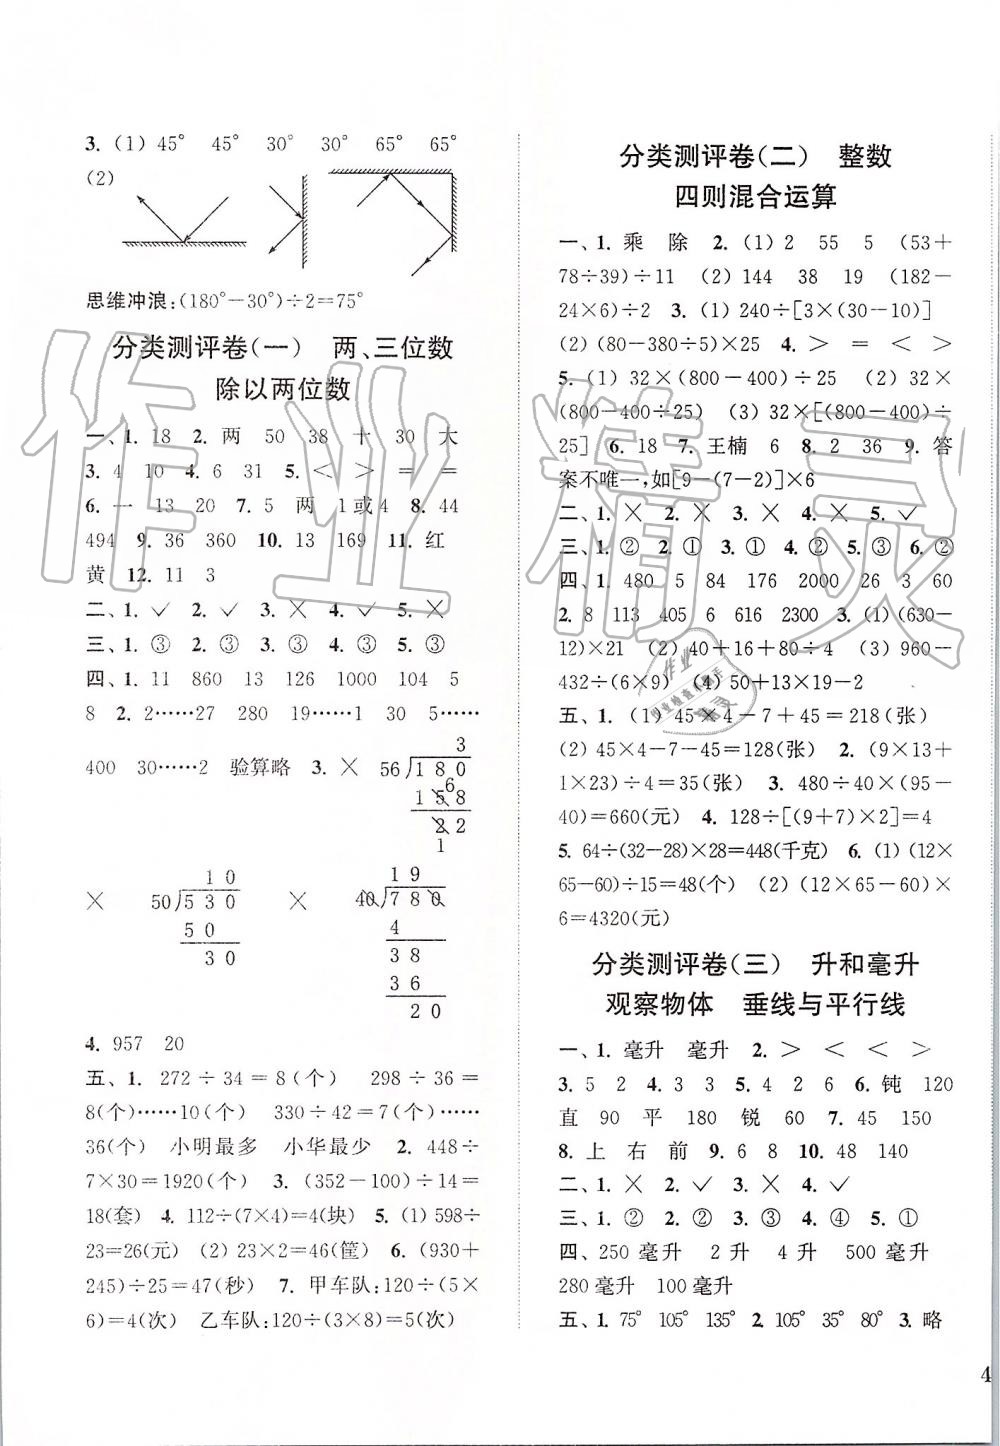 3. (1) 45° 45° 30° 30° 65° 65°
(2)
思维冲浪:(180°－30°)÷2=75°
分类测评卷(一) 两、三位数
除以两位数
一、1. 18 2. 两 50 38 十 30 大
3. 4 10 4. 6 31 5. < > = =
6. 一 13 20 7. 5 两 1或4 8. 44
494 9. 36 360 10. 13 169 11. 红
黄 12. 11 3
二、1. ✓ 2. ✓ 3. ✕ 4. ✓ 5. ✕
三、1. ③ 2. ③ 3. ③ 4. ③ 5. ③
四、1. 11 860 13 126 1000 104 5
8 2. 2……27 280 19……1 30 5……
400 30……2 验算略 3. ✕
3
56 180
6
158
22
1
✕
10
50 530
50
30
✕
19
40 780
4
38
36
20
4. 957 20
五、1. 272÷34=8(个) 298÷36=
8(个)……10(个) 330÷42=7(个)……
36(个) 小明最多 小华最少 2. 448÷
7×30=1920(个) 3. (352－100)÷14=
18(套) 4. 112÷(7×4)=4(块) 5. (1) 598÷
23=26(元) (2) 23×2=46(筐) 6. (930+
245)÷25=47(秒) 7. 甲车队:120÷(5×
6)=4(次) 乙车队:120÷(3×8)=5(次)
分类测评卷(二) 整数
四则混合运算
一、1. 乘 除 2. (1) 2 55 5 (53+
78÷39)÷11 (2) 144 38 19 (182-
24×6)÷2 3. (1) 240÷[3×(30－10)]
(2) (80－380÷5)×25 4. > = < >
5. (1) 32×(800－400)÷25 (2) 32×
(800－400÷25) (3) 32×[(800－400)÷
25] 6. 18 7. 王楠 6 8. 2 36 9. 答
案不唯一,如[9－(7－2)]×6
二、1. ✕ 2. ✕ 3. ✕ 4. ✕ 5. ✓
三、1. ② 2. ① 3. ① 4. ② 5. ③ 6. ②
四、1. 480 5 84 176 2000 26 3 60
2. 8 113 405 6 616 2300 3. (1) (630－
12)×21 (2) 40+16+80÷4 (3) 960－
432÷(6×9) (4) 50+13×15－2
五、1. (1) 45×4－7+45=218(张)
(2) 45×4－7－45=128(张) 2. (9×13+
1×23)÷4=35(张) 3. 480÷40×(95－
40)=660(元) 4. 128÷[(9+7)×2]=4
5. 64÷(32－28)×28=448(千克) 6. (1) (12×
65－60)÷15=48(个) (2) (12×65－60)×
6=4320(元)
分类测评卷(三) 升和毫升
观察物体 垂线与平行线
一、1. 毫升 毫升 2. > < < >
3. 5 2 4. 3 8 5. 4 2 6 6. 钝 120
直 90 平 180 锐 60 7. 45 150
8. 上 右 前 9. 6 8 10. 48 140
二、1. ✕ 2. ✓ 3. ✕ 4. ✓
三、1. ② 2. ② 3. ③ 4. ④ 5. ①
四、250毫升 2升 4升 500毫升
280毫升 100毫升
五、1. 75° 105° 135° 2. 105° 35° 80° 3. 略
4
作业精灵